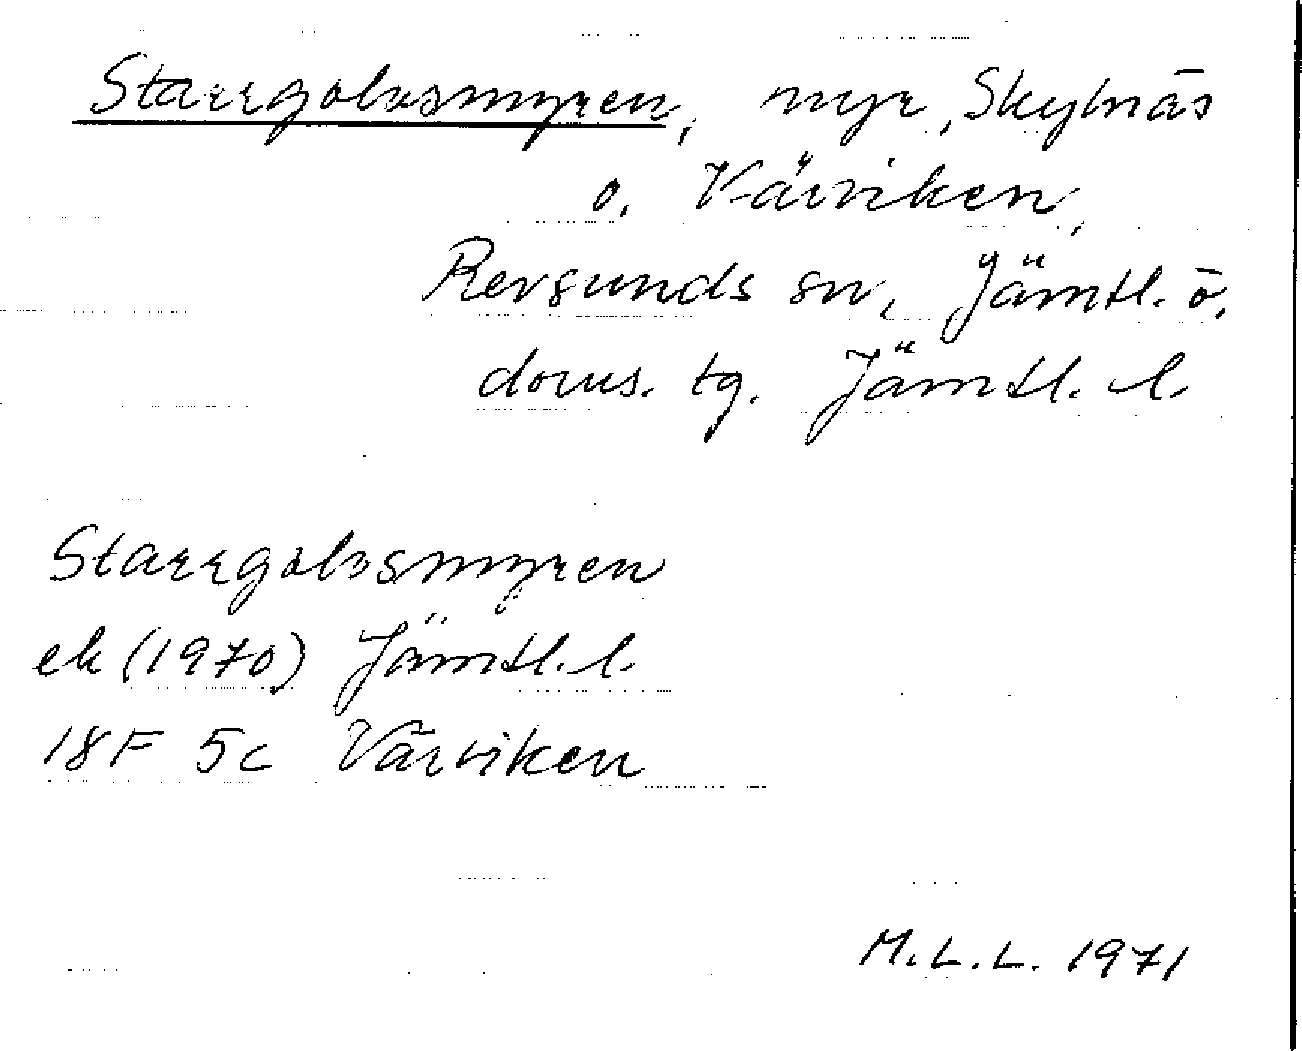 Starrgolvsmyren, myr, Skylnäs
o. Värviken,
Revsunds sn, Jämtl. ö.
doms. tg. Jämtl. l.
Starrgolvsmyren
ek (1970) Jämtl. l.
18F 5c Värviken
M.L.L. 1971